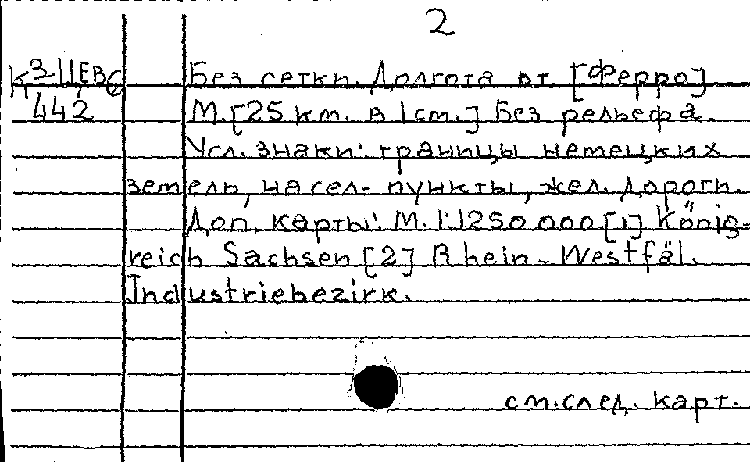 2
Без сетки. Долгота от [Ферро]
442 М.[25 км. в 1см.] Без рельефа.
Усл. знаки: границы немецких
земель, насел. пункты, жел. дороги.
Доп. карты: М. 1:1250.000 [1] König-
reich Sachsen [2] Rhein-Westfäl.
Industriebezirk.
см. след. карт.